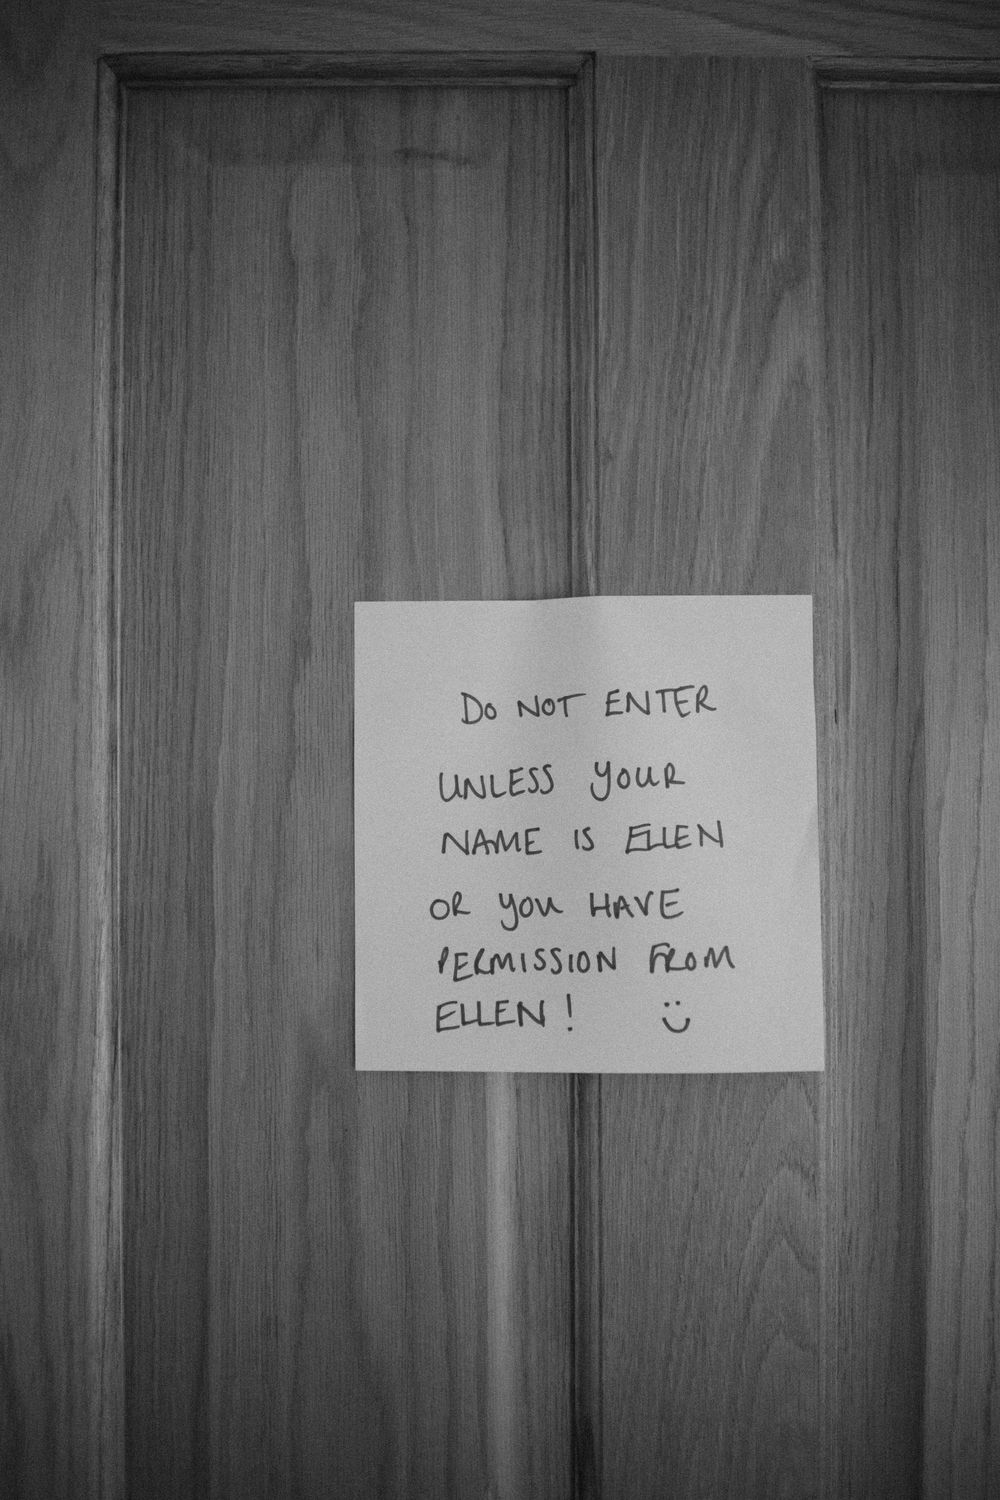 DO NOT ENTER
UNLESS YOUR
NAME IS ELLEN
OR YOU HAVE
PERMISSION FROM
ELLEN! :)